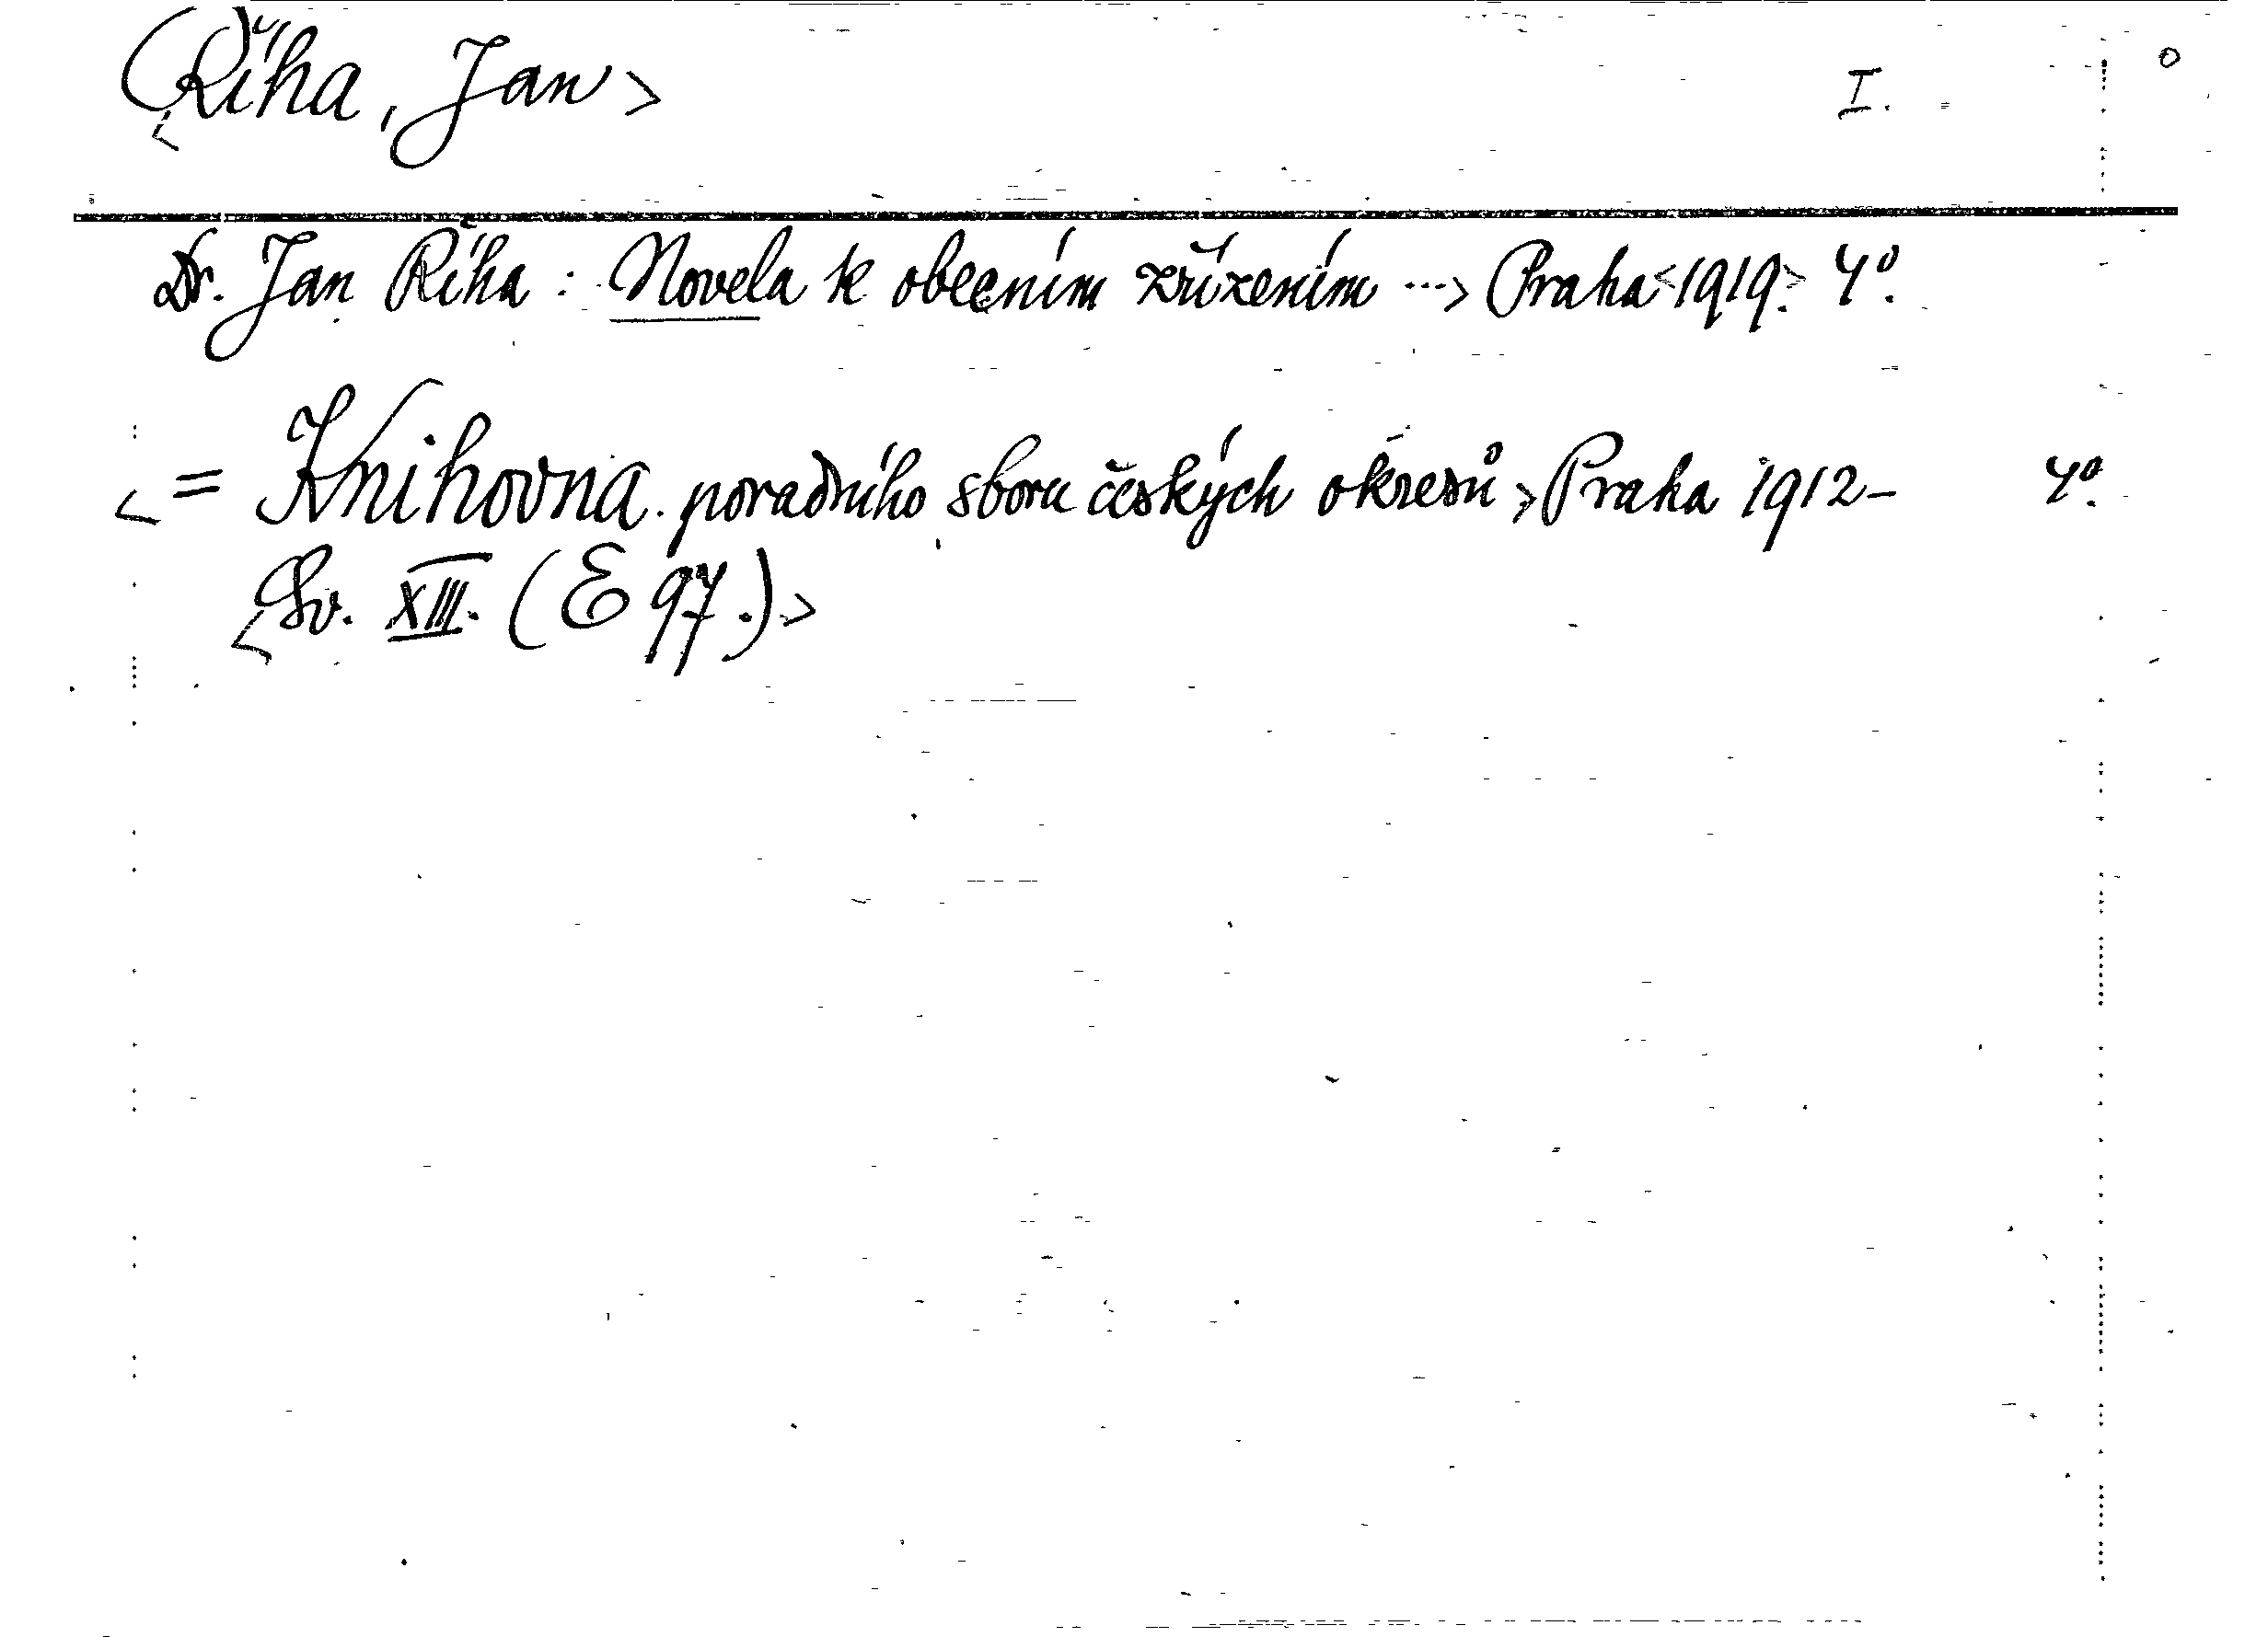 <Říha, Jan> I.
Dr. Jan Říha: Novela k obecním zřízením ...> Praha <1919.> 4º.
<= Knihovna poradního sboru českých okresů,> Praha 1912– 4º.
<Sv. XIII. (E 97.)>